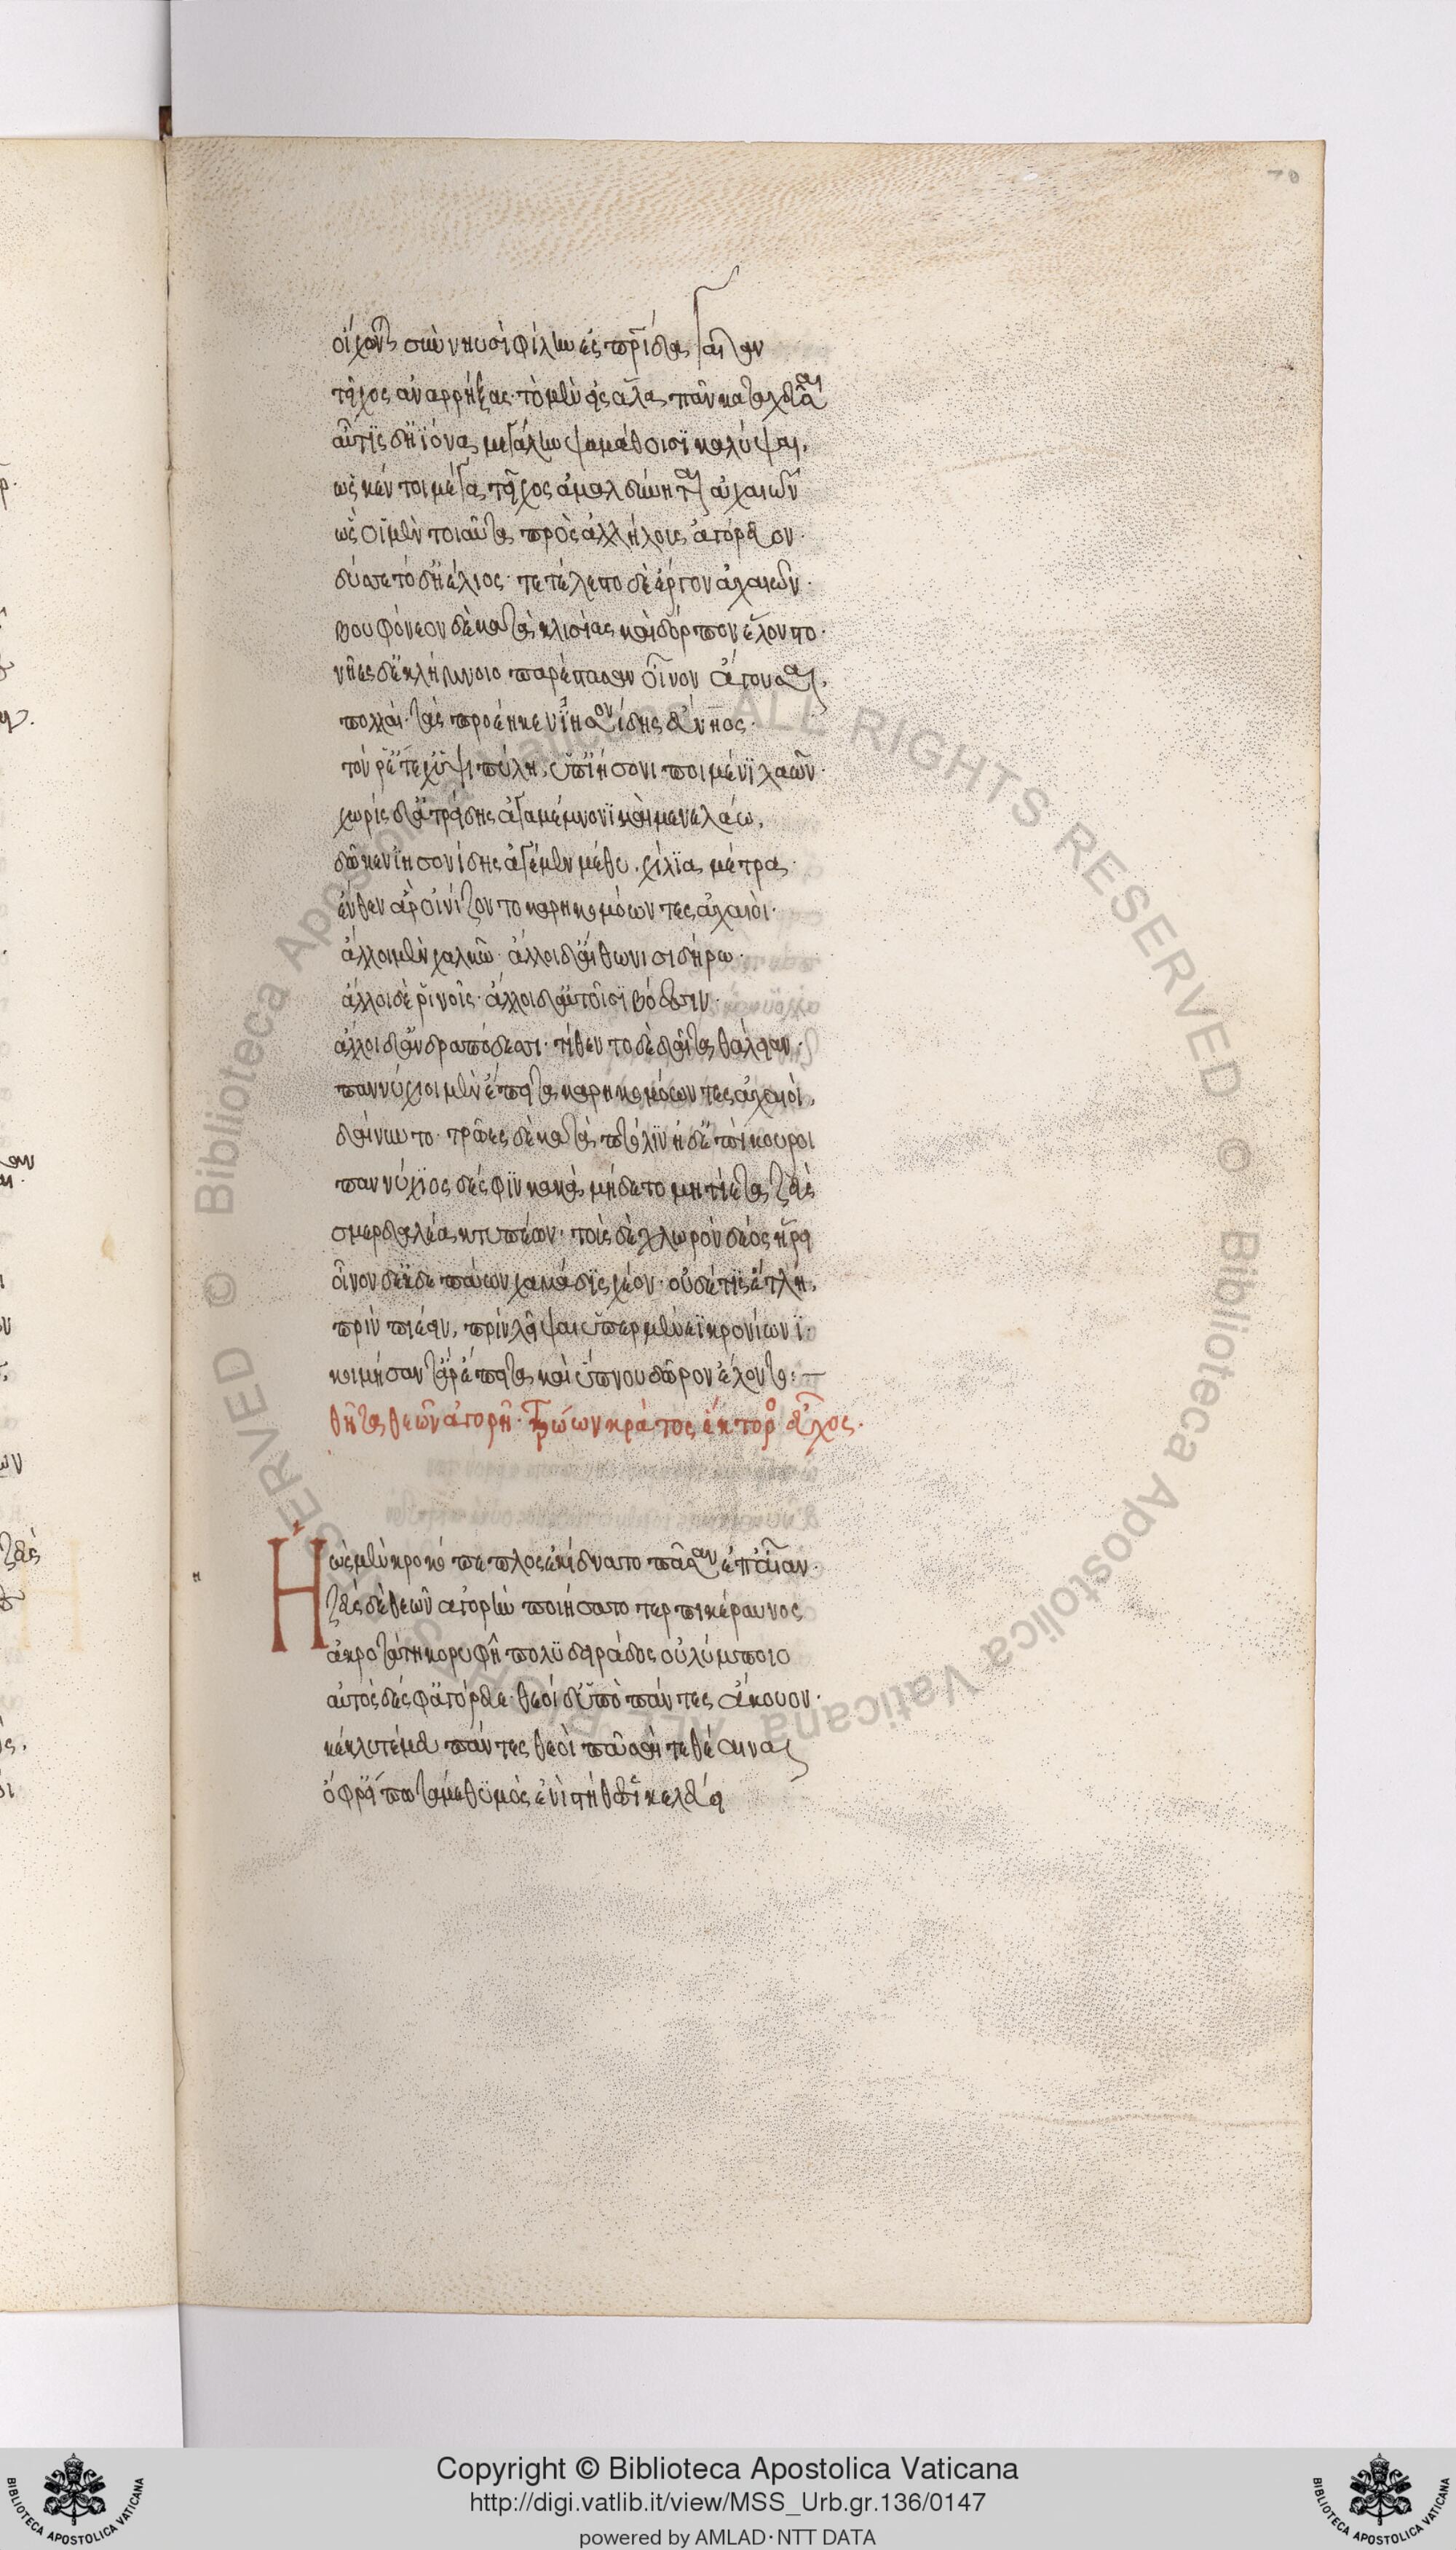 70
οἴχονται σὺν νηυσὶ φίλην ἐς πατρίδα γαῖαν
τεῖχος ἀναρρήξας· τὸ μὲν εἰς ἅλα πᾶν καταχεῦαι
αὖτις δ' ἠϊόνα μεγάλην ψαμάθοισι καλύψαι,
ὥς κέν τοι μέγα τεῖχος ἀμαλδύνηται ἀχαιῶν
ὣς οἱ μὲν τοιαῦτα πρὸς ἀλλήλους ἀγόρευον·
δύσετο δ' ἠέλιος· τετέλεστο δὲ ἔργον ἀχαιῶν·
βουφόνεον δὲ κατὰ κλισίας καὶ δόρπον ἕλοντο·
νῆες δ' ἐκ λήμνοιο παρέστασαν οἶνον ἄγουσαι,
πολλαί· τὰς προέηκεν ἰησονίδης εὔνηος·
τόν ῥ' ἔτεχ' ὑψιπύλη, ὑπ' ἰήσονι ποιμένι λαῶν·
χωρὶς δ' ἀτρείδης ἀγαμέμνονι καὶ μενελάω,
δῶκεν ἰησονίδης ἀγέμεν μέθυ, χίλια μέτρα·
ἔνθεν ἄρ' οἰνίζοντο καρηκομόωντες ἀχαιοί·
ἄλλοι μὲν χαλκῶ· ἄλλοι δ' αἴθωνι σιδήρω·
ἄλλοι δὲ ῥινοῖς· ἄλλοι δ' αὐτοῖσι βόεσσιν·
ἄλλοι δ' ἀνδραπόδεσσι· τίθεντο δὲ δαῖτα θάλειαν·
παννύχιοι μὲν ἔπειτα καρηκομόωντες ἀχαιοί,
δαίνυντο· τρῶες δὲ κατὰ πτόλιν ἠδ' ἐπίκουροι
παννύχιος δέ σφιν κακὰ μήδετο μητίετα ζεὺς
σμερδαλέα κτυπέων· τοὺς δὲ χλωρὸν δέος ἥρει
οἶνον δ' ἐκ δεπάων χαμάδις χέον· οὐδέ τις ἔτλη,
πρὶν πιέειν, πρὶν λεῖψαι ὑπερμενέϊ κρονίωνι·
κοιμήσαντ' ἄρ' ἔπειτα καὶ ὕπνου δῶρον ἕλοντο:—
θῆτα θεῶν ἀγορή· τρώων κράτος ἕκτορος εὖχος·
Ἠὼς μὲν κροκόπεπλος ἐκίδνατο πᾶσαν ἐπ' αἶαν·
ζεὺς δὲ θεῶν ἀγορὴν ποιήσατο τερπικέραυνος
ἀκροτάτη κορυφῆ πολυδειράδος οὐλύμποιο
αὐτὸς δέ σφ' ἀγόρευε· θεοὶ δ' ὑπὸ πάντες ἄκουον·
κέκλυτέ μευ πάντες θεοὶ πᾶσαί τε θέαιναι
ὄφρ' εἴπω τά με θυμὸς ἐνὶ στήθεσσι κελεύει
Copyright © Biblioteca Apostolica Vaticana
http://digi.vatlib.it/view/MSS_Urb.gr.136/0147
powered by AMLAD·NTT DATA